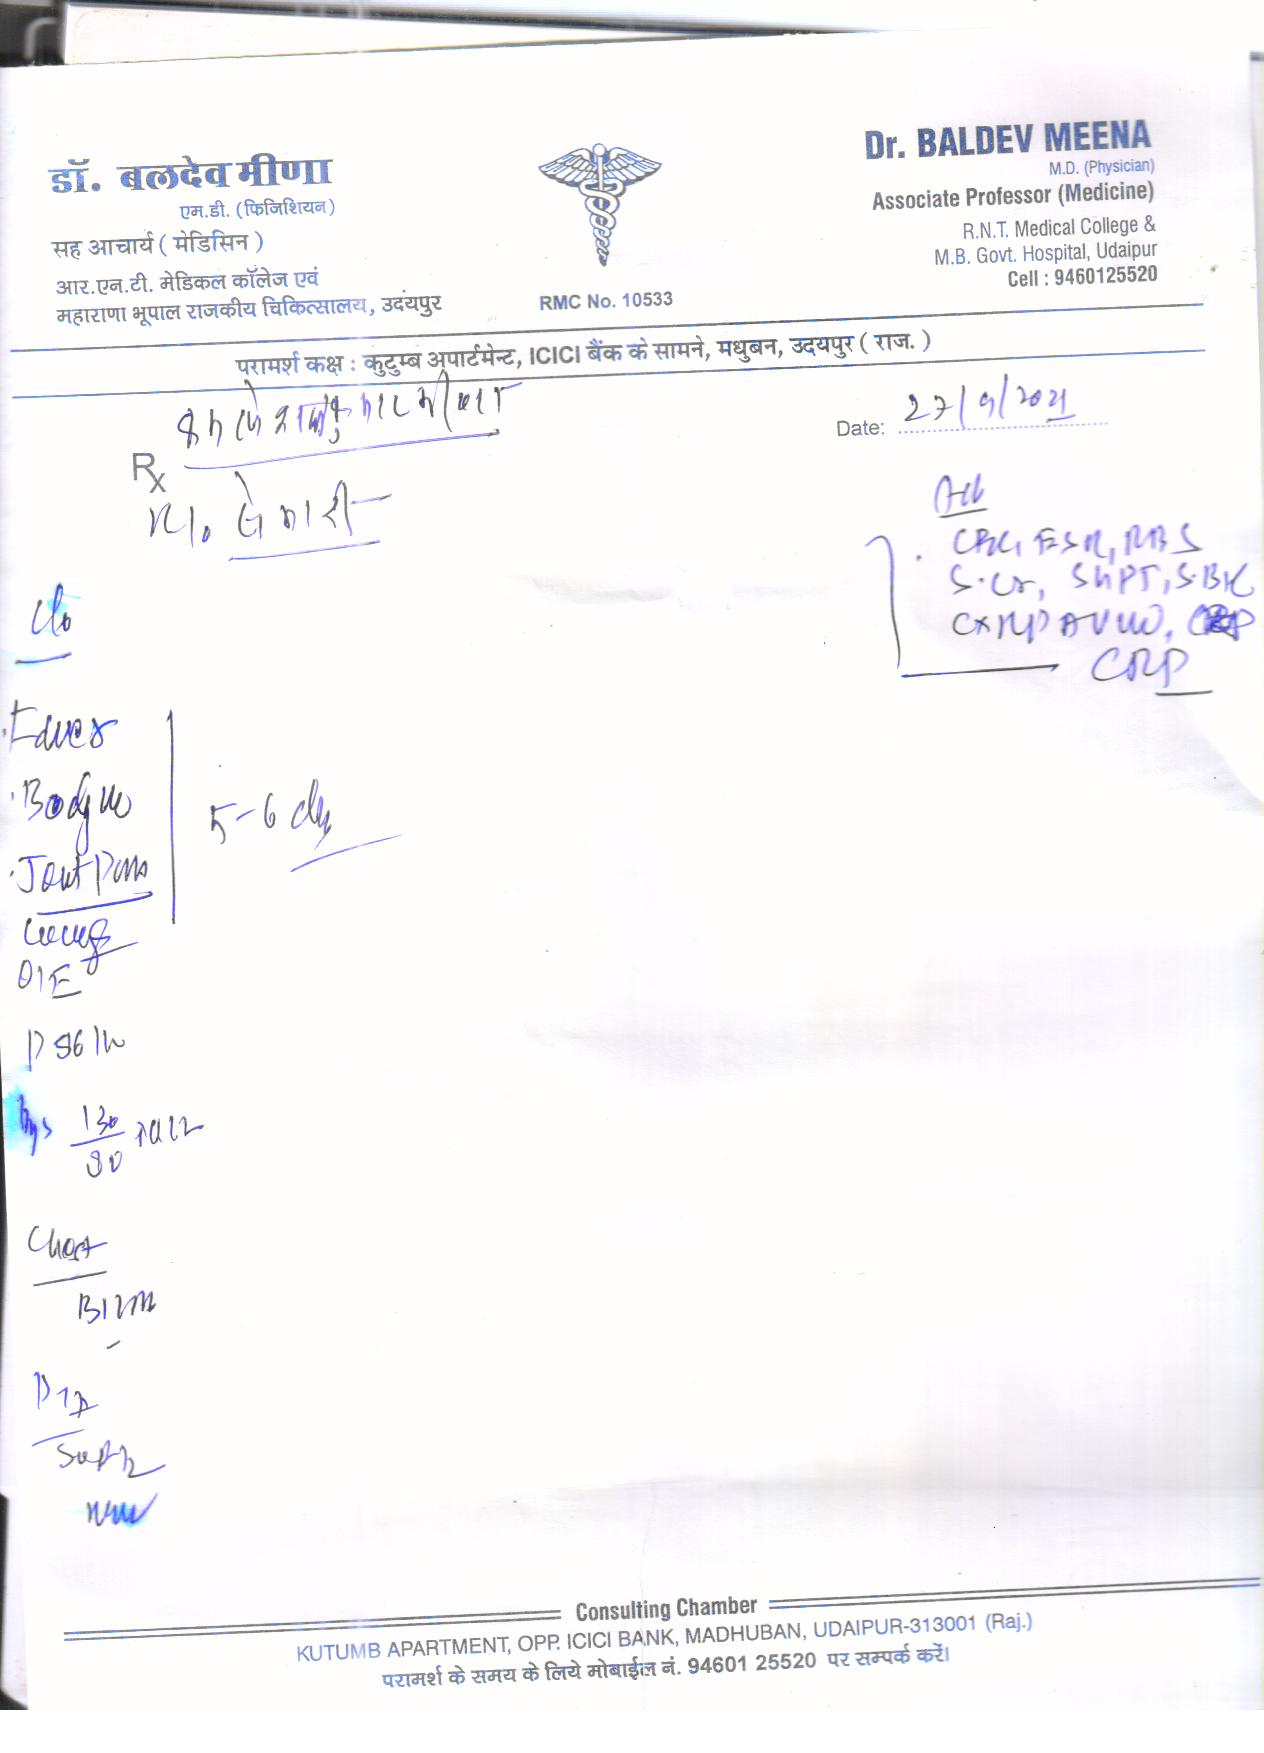 डॉ. बलदेव मीणा
एम.डी. (फिजिशियन)
सह आचार्य ( मेडिसिन )
आर.एन.टी. मेडिकल कॉलेज एवं
महाराणा भूपाल राजकीय चिकित्सालय, उदयपुर
RMC No. 10533
Dr. BALDEV MEENA
M.D. (Physician)
Associate Professor (Medicine)
R.N.T. Medical College &
M.B. Govt. Hospital, Udaipur
Cell : 9460125520
परामर्श कक्ष : कुटुम्ब अपार्टमेन्ट, ICICI बैंक के सामने, मधुबन, उदयपुर ( राज. )
Date: 27/9/2021
Rx
R/o सेमारी
Adv
CBC, ESR, RBS
S.Cr, SGPT, S.
CRP
C/o
Fever
Joint Pain
5-6 day
O/E
P 96/m
130
90
Chest
P/A
Soft
Consulting Chamber
KUTUMB APARTMENT, OPP. ICICI BANK, MADHUBAN, UDAIPUR-313001 (Raj.)
परामर्श के समय के लिये मोबाईल नं. 94601 25520 पर सम्पर्क करें।